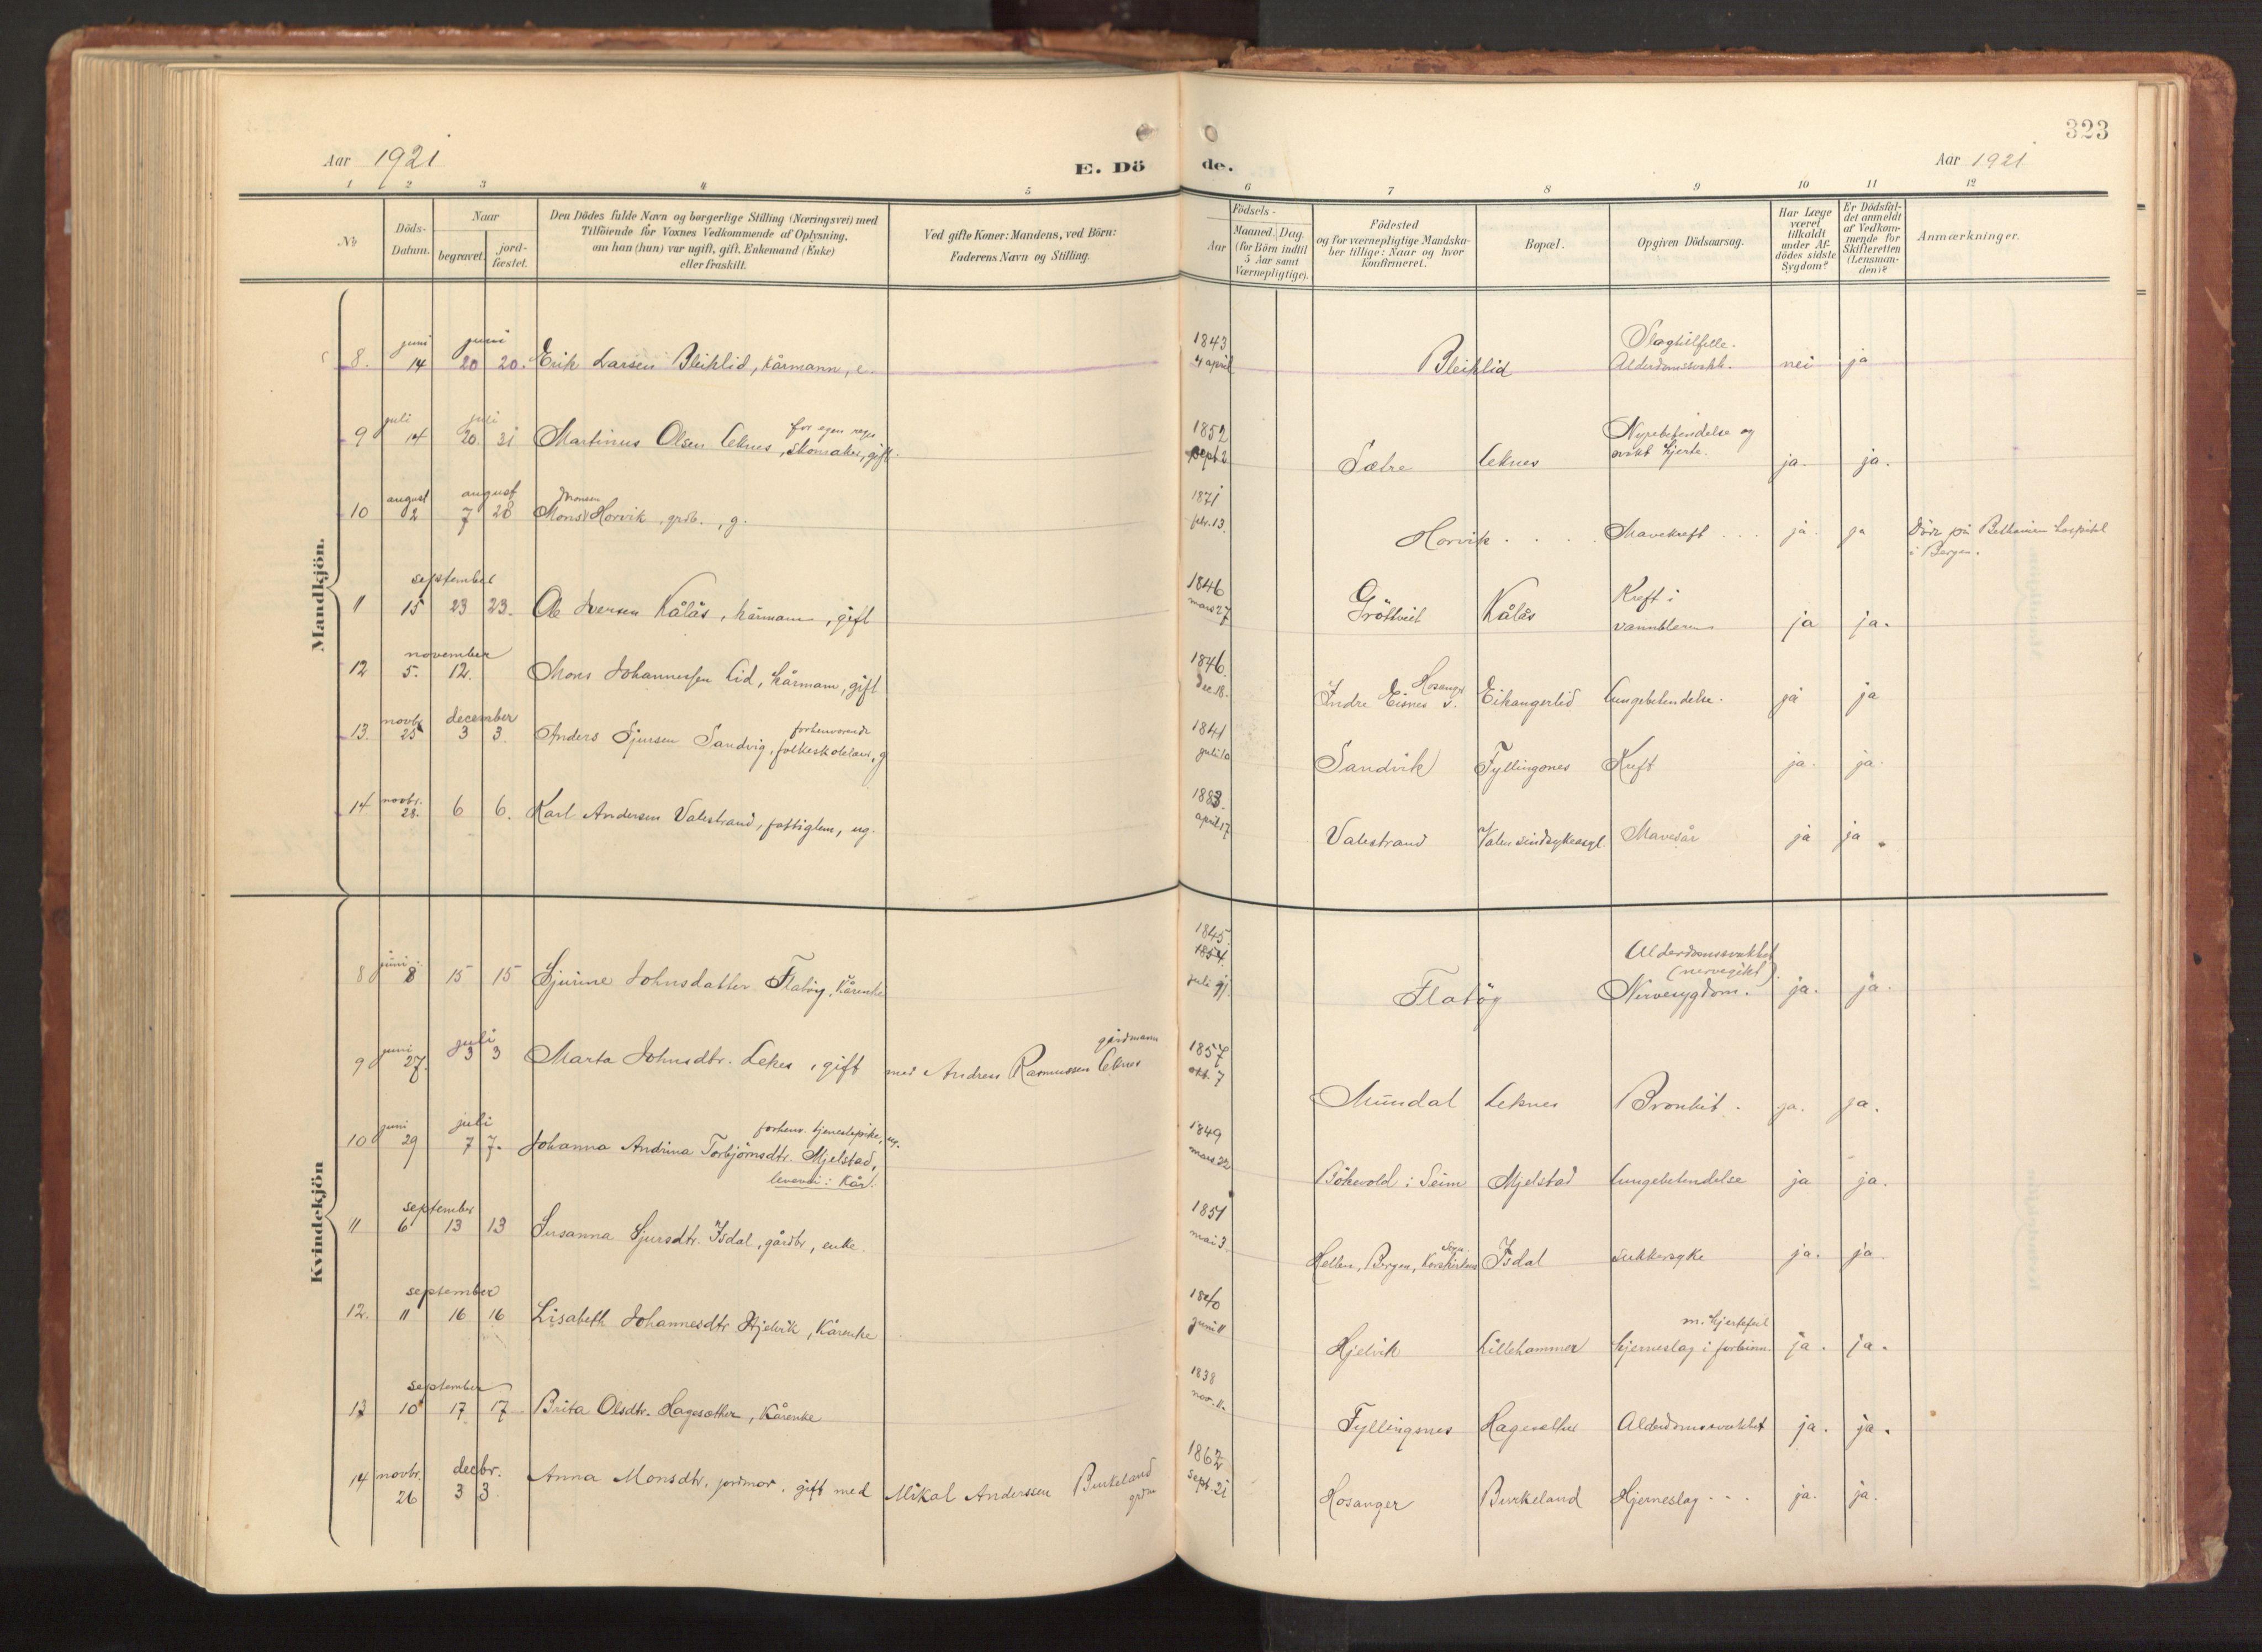 323
Aar 1921
E. Dö
de.
Aar 1921
1 2 3 4 5 6 7 8 9 10 11 12
No
Döds-Datum.
Naar
begravet.
jord-fæstet.
Den Dödes fulde Navn og borgerlige Stilling (Næringsvei) med
Tilföiende for Voxnes Vedkommende af Oplysning,
om han (hun) var ugift, gift, Enkemand (Enke)
eller fraskilt.
Ved gifte Koner: Mandens, ved Börn:
Faderens Navn og Stilling.
Födsels-
Aar
Maaned. Dag.
(for Börn indtil
5 Aar samt
Værnepligtige).
Födested
og for værnepligtige Mandska-
ber tillige: Naar og hvor
konfirmeret.
Bopæl.
Opgiven Dödsaarsag.
Har Læge
været
tilkaldt
under Af-
dödes sidste
Sygdom?
Er Dödsfal-
det anmeldt
af Vedkom-
mende for
Skifteretten
(Lensman-
den)?
Anmærkninger.
Mandkjön.
juni juni 1843 Slagtilfelle.
8. 14 20 20. Erik Larsen Bleiklid, kårmann, e. 4 april Bleiklid Alderdomssvakh. nei ja
juli juli for egen regn 1852 Nyrebetendelse og
9 14 20. 31 Martinus Olsen Leknes, skomaker, gift. sept. 2 Sætre Leknes svakt hjerte. ja. ja.
august august Monsen 1871
10 2 7 28 Mons Horvik, grdb., g. febr. 13 Horvik Mavekreft ja. ja Döde på Bethanien hospital
i Bergen.
september 1846 Kreft i
11 15 23 23. Ole Iversen Kålås, kårmann, gift mars 27 Gröttveit Kålås vannblæren ja ja.
november 1846. Hosanger
12 5. 12. Mons Johannessen Lid, kårmann, gift dec. 18. Indre Eisnes Eikangerlid Lungebetendelse. ja ja
novbr. december forhenværende 1841
13. 25 3 3. Anders Sjursen Sandvig, folkeskolelærer, g juli 10 Sandvik Fyllingsnes Kreft ja. ja.
novbr. 1883.
14 28. 6 6. Karl Andersen Valestrand, fattiglem, ug. april 17 Valestrand Valen sindsykeasyl. Mavesår ja ja.
Kvindekjön
1845. Alderdomssvakhet
juni 1854. (nervegikt)
8 8 15 15 Sjurine Johnsdatter Flatöy, Kårenke juli 9 Flatöy Nervesygdom. ja. ja.
juni juli gårdmann 1857
9 27. 3 3 Marta Johnsdtr. Leknes, gift med Andreas Rasmussen Leknes okt. 7 Mundal Leknes Bronkit. ja. ja.
juni juli forhenv. tjenestepike, ug. 1849
10 29 7 7. Johanna Andrina Torbjörnsdtr. Mjelstad, mars 22 Bökevold i Seim Mjelstad Lungebetendelse ja ja.
lever av: Kår.
september 1851
11 6 13 13 Susanna Sjursdtr. Isdal, gårdbr, enke. mai 3. Hellen, Bergen, Korskirkens Sogn. Isdal sukkersyke ja. ja
september 1840 m. hjertefeil
12. 11 16 16 Lisabeth Johannesdtr Hjelvik, Kårenke juni 11 Hjelvik Lillehammer hjerneslag i forbinn. ja. ja.
september 1838
13 10 17 17 Brita Olsdtr. Hagesæther, Kårenke nov. 11. Fyllingsnes Hagesæther Alderdomssvakhet ja. ja.
novbr. decbr. 1862
14 26 3 3. Anna Monsdtr, jordmor, gift med Mikal Anderssen Burkeland grdm sept. 21 Hosanger Burkeland Hjerneslag ja. ja.